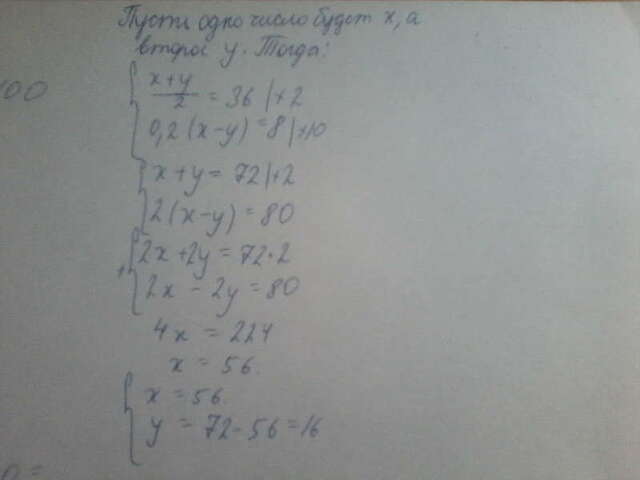 Пусть одно число будет x, а
второе y. Тогда:
100
x+y
2 = 36 |*2
0,2(x-y) = 8|*10
x+y = 72|*2
2(x-y) = 80
2x+2y = 72*2
+
2x - 2y = 80
4x = 224
x = 56.
x = 56.
y = 72-56=16
0 =